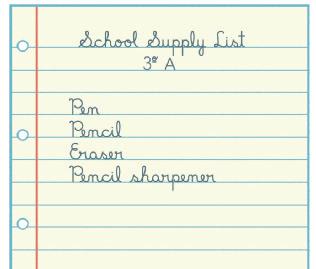 School Supply List
3ª A
Pen
Pencil
Eraser
Pencil sharpener